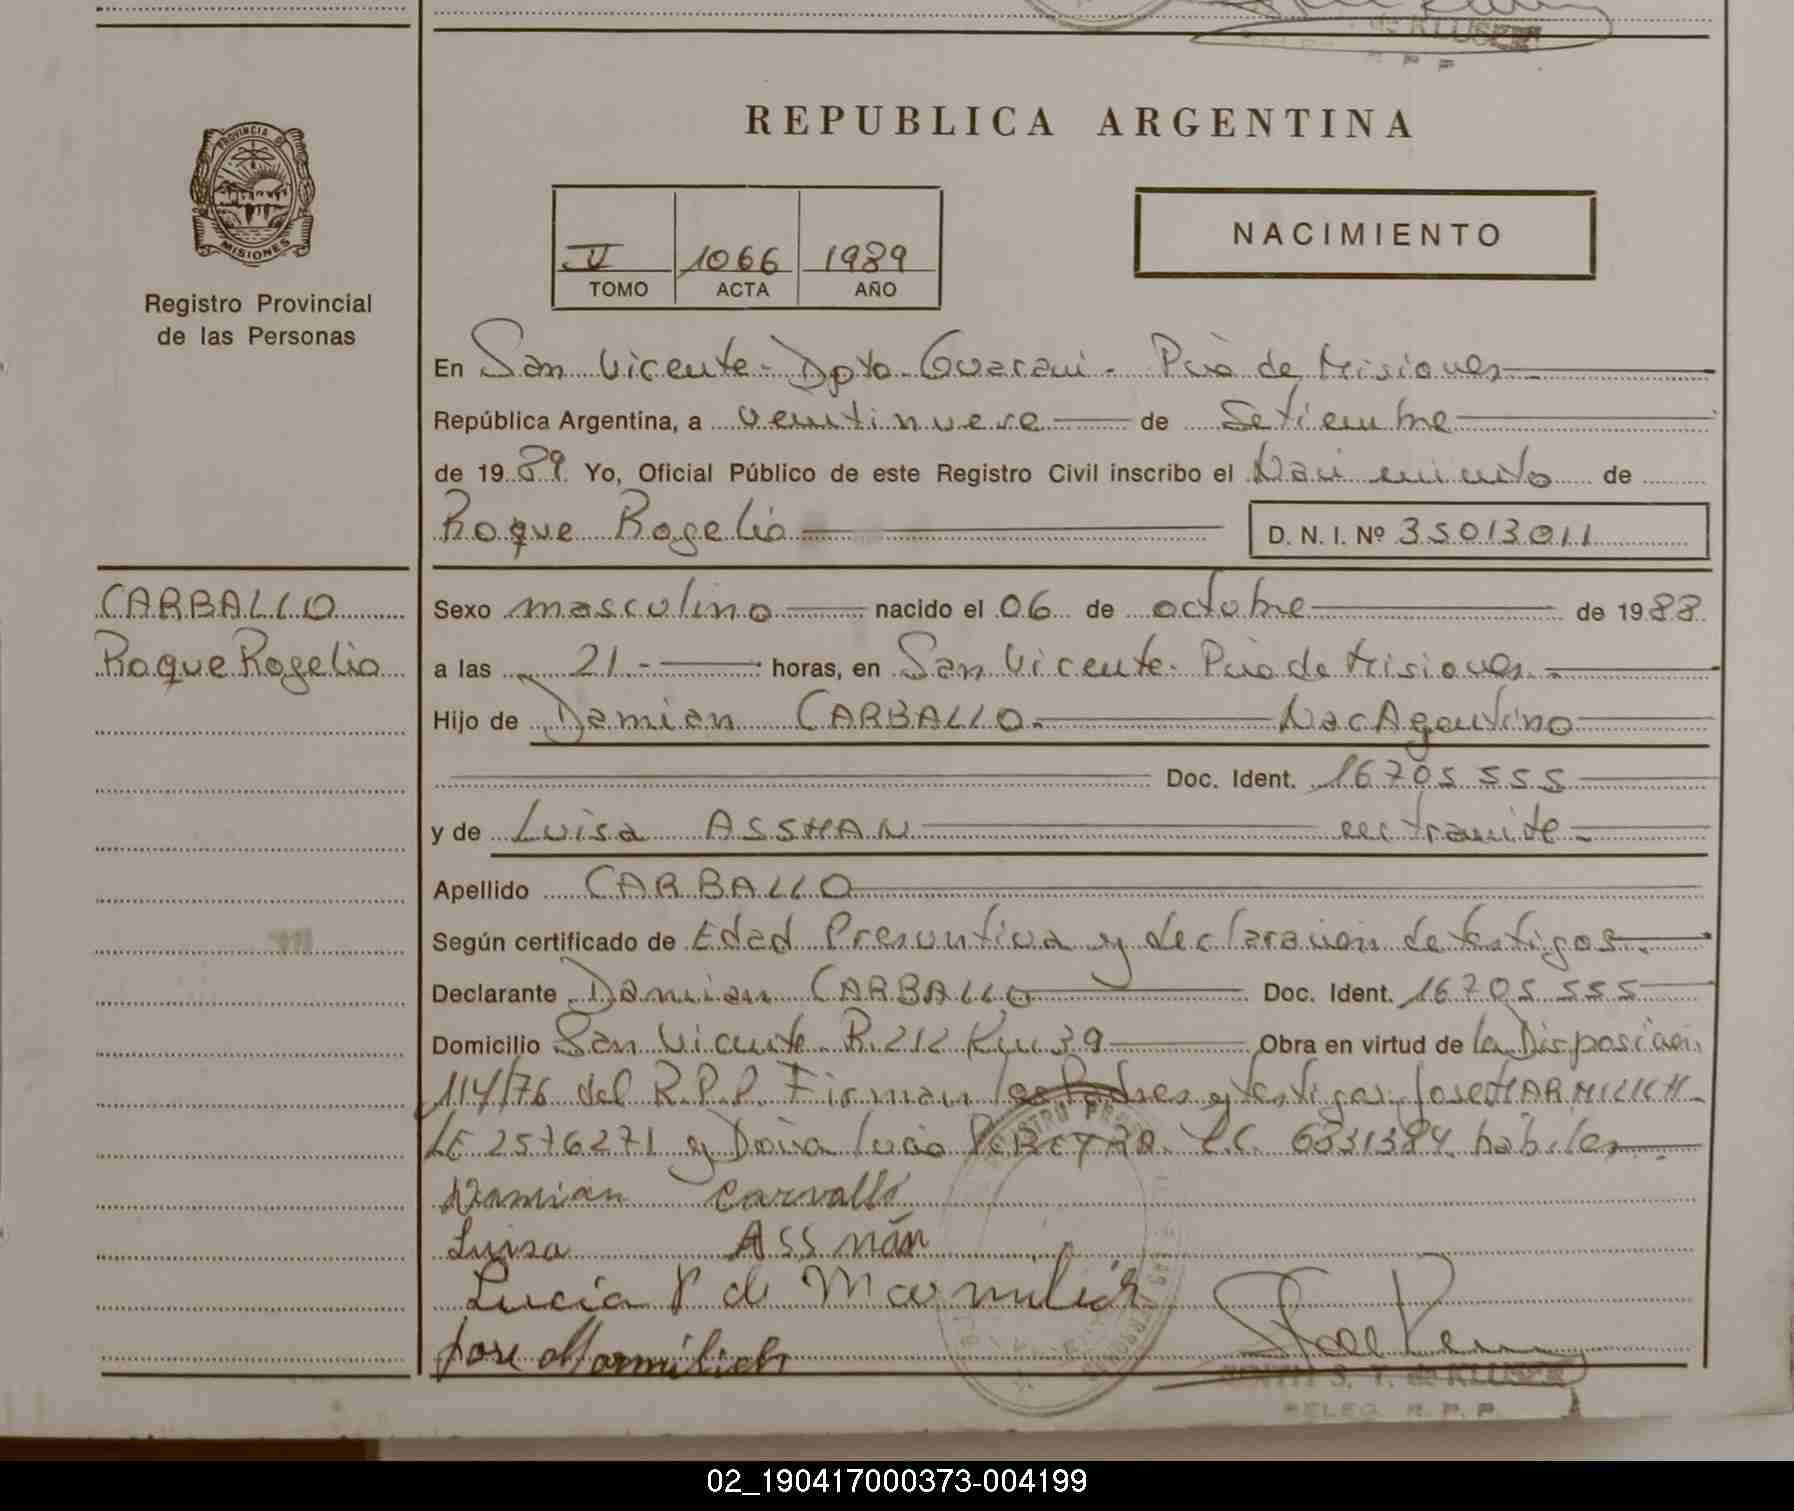 de KLUSER
R P P
REPUBLICA ARGENTINA
PROVINCIA DE
MISIONES
Registro Provincial
de las Personas
V 1066 1989
TOMO ACTA AÑO
NACIMIENTO
En San Vicente - Dpto. Guarani - Pcia de Misiones
República Argentina, a veintinueve de Setiembre
de 1989 Yo, Oficial Público de este Registro Civil inscribo el Nacimiento de
Roque Rogelio
D. N. I. Nº 35013011
CARBALLO
Roque Rogelio
Sexo masculino nacido el 06 de octubre de 1988
a las 21.- horas, en San Vicente. Pcia de Misiones.-
Hijo de Damian CARBALLO. Nac Agentino
Doc. Ident. 16705555
y de Luisa ASSMAN en tramite.-
Apellido CARBALLO
Según certificado de Edad Presuntiva y declaracion de testigos.
Declarante Damian CARBALLO Doc. Ident. 16705555
Domicilio San Vicente R.212 Km 39 Obra en virtud de la Disposicion
114/76 del R.P.P. Firman los Padres y testigos Jose MARMILICH
LE 2576271 y Doña Lucia PEREYRA L.C. 6331384 habiles
Damian Carvallo
Luisa Assmán
Lucia P de Marmilich
Jose Marmilich
S. T. de KLUSER
DELEG. R. P. P.
02_190417000373-004199